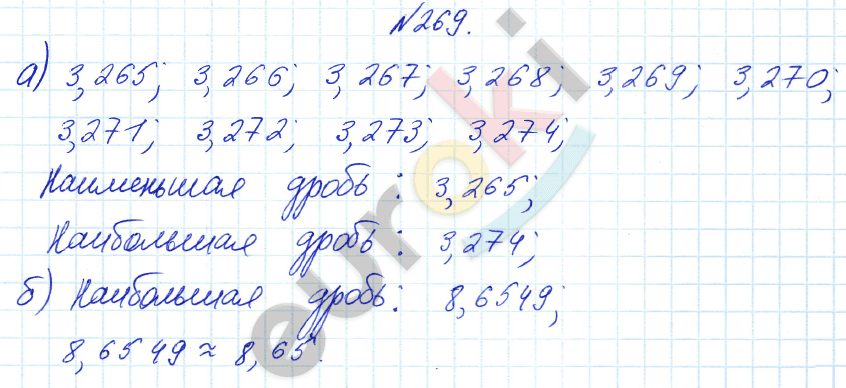 №269.
а) 3,265; 3,266; 3,267; 3,268; 3,269; 3,270;
3,271; 3,272; 3,273; 3,274;
Наименьшая дробь: 3,265;
Наибольшая дробь: 3,274;
б) Наибольшая дробь: 8,6549;
8,6549 ≈ 8,65.
euroki